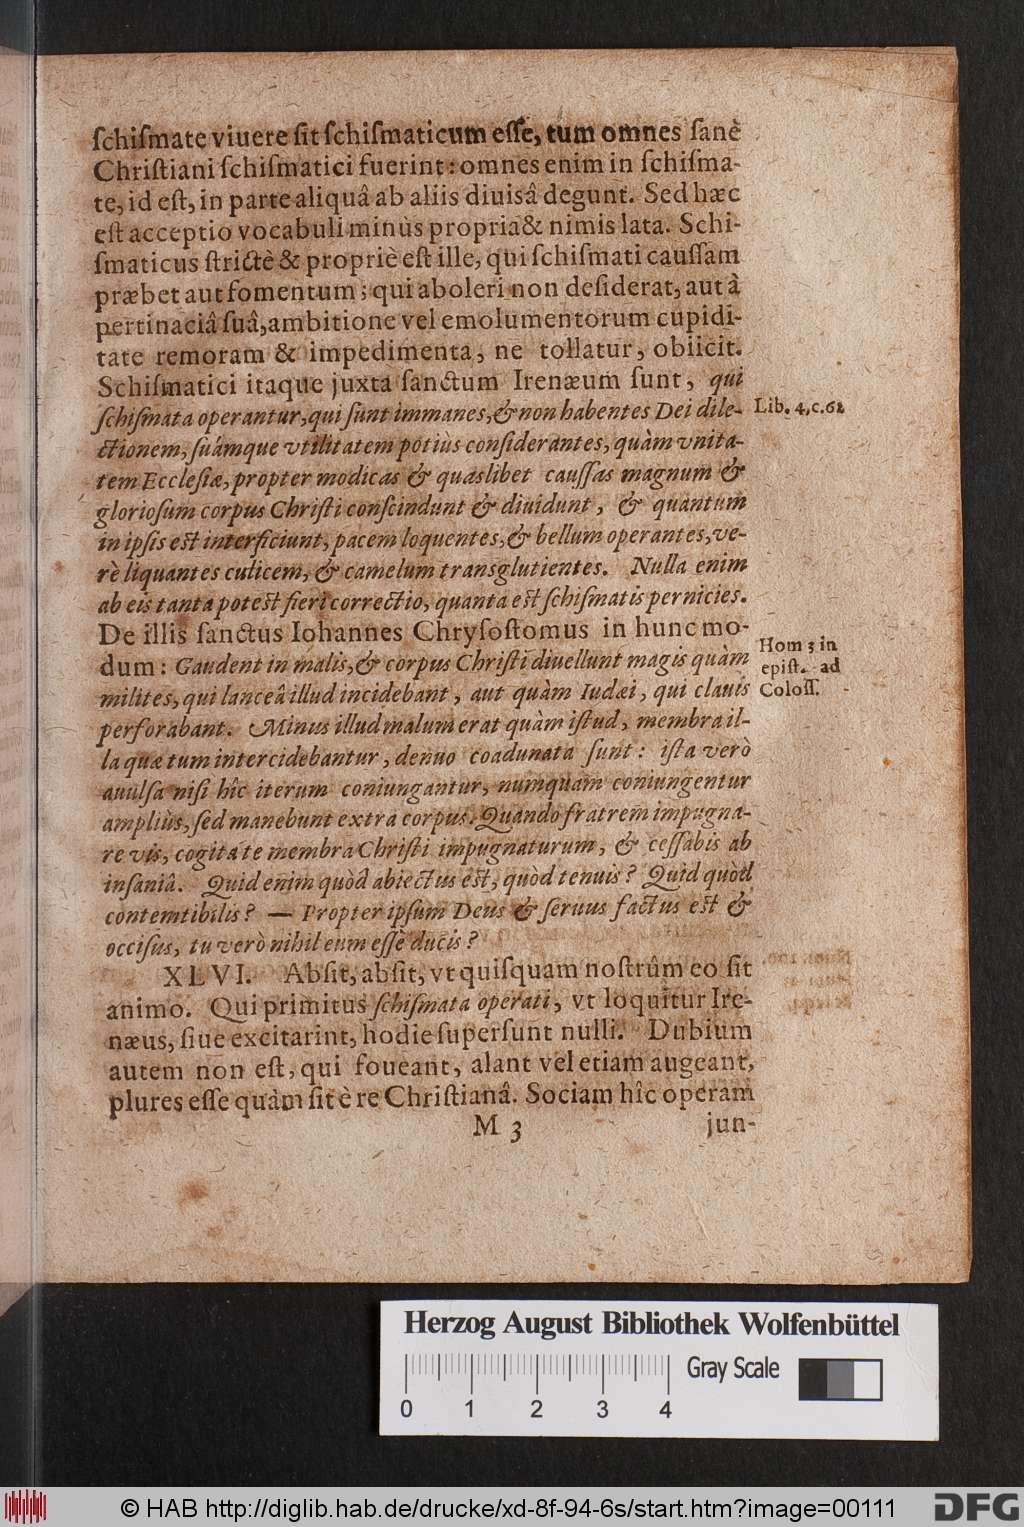 ſchiſmate viuere ſit ſchiſmaticum eſſe, tum omnes ſanè
Chriſtiani ſchiſmatici fuerint: omnes enim in ſchiſma-
te, id eſt, in parte aliquâ ab aliis diuisâ degunt. Sed hæc
eſt acceptio vocabuli minùs propria & nimis lata. Schi-
ſmaticus ſtrictè & propriè eſt ille, qui ſchiſmati cauſſam
præbet aut fomentum; qui aboleri non deſiderat, aut à
pertinaciâ ſuâ, ambitione vel emolumentorum cupidi-
tate remoram & impedimenta, ne tollatur, obiicit.
Schiſmatici itaque juxta ſanctum Irenæum ſunt, qui
ſchiſmata operantur, qui ſunt immanes, & non habentes Dei dile-
Lib. 4. c. 62
ctionem, ſuámque vtilitatem potiùs conſiderantes, quàm vnita-
tem Eccleſiæ, propter modicas & quaslibet cauſſas magnum &
glorioſum corpus Chriſti conſcindunt & diuidunt, & quantum
in ipſis eſt interficiunt, pacem loquentes, & bellum operantes, ve-
rè liquantes culicem, & camelum transglutientes. Nulla enim
ab eis tanta poteſt fieri correctio, quanta eſt ſchiſmatis pernicies.
De illis ſanctus Iohannes Chryſoſtomus in hunc mo-
dum: Gaudent in malis, & corpus Chriſti diuellunt magis quàm
milites, qui lanceâ illud incidebant, aut quàm Iudæi, qui clauis
Hom 3 in
epiſt. ad
Coloſſ.
perforabant. Minus illud malum erat quàm iſtud, membra il-
la quæ tum intercidebantur, denuo coadunata ſunt: iſta verò
auulſa niſi hîc iterum coniungantur, numquam coniungentur
ampliùs, ſed manebunt extra corpus. Quando fratrem impugna-
re vis, cogita te membra Chriſti impugnaturum, & ceſſabis ab
inſaniâ. Quid enim quòd abiectus eſt, quòd tenuis? Quid quòd
contemtibilis? — Propter ipſum Deus & ſeruus factus eſt &
occiſus, tu verò nihil eum eſſe ducis?
XLVI. Abſit, abſit, vt quiſquam noſtrûm eo ſit
animo. Qui primitus ſchiſmata operati, vt loquitur Ire-
næus, ſiue excitarint, hodie ſuperſunt nulli. Dubium
autem non eſt, qui foueant, alant vel etiam augeant,
plures eſſe quàm ſit è re Chriſtianâ. Sociam hîc operam
M 3
jun-
Herzog August Bibliothek Wolfenbüttel
Gray Scale
0 1 2 3 4
© HAB http://diglib.hab.de/drucke/xd-8f-94-6s/start.htm?image=00111
DFG